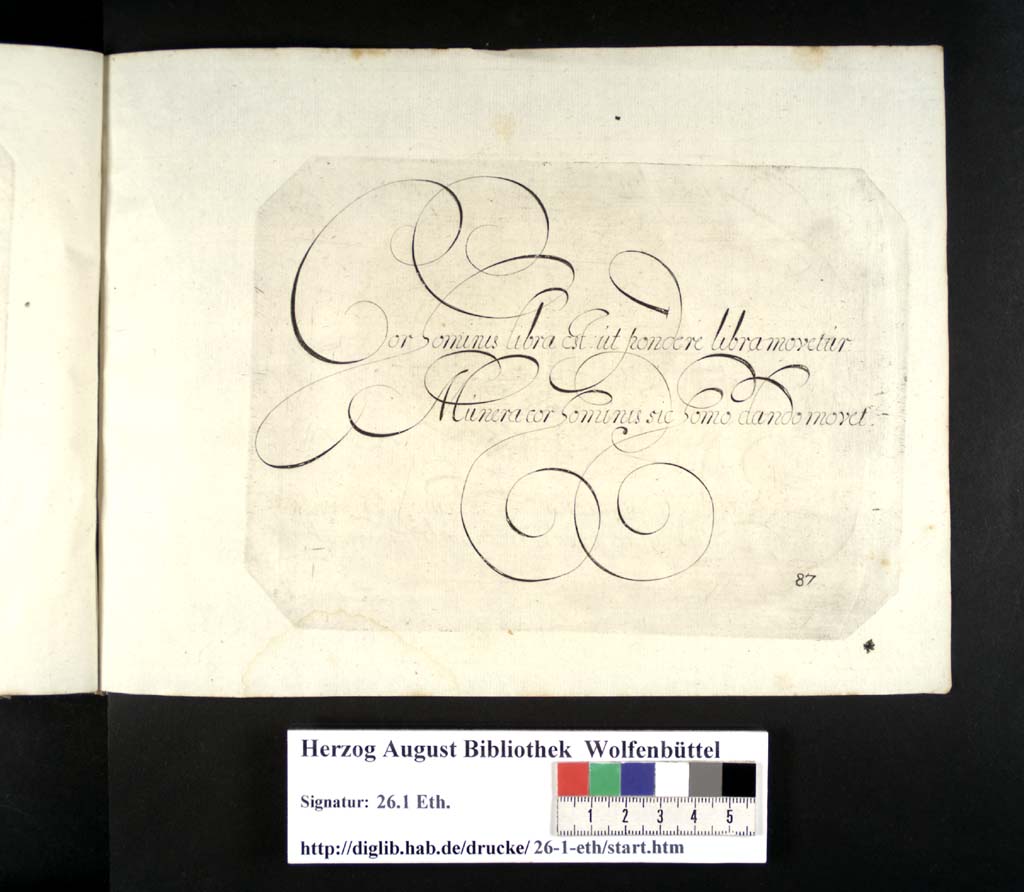 Cor hominis libra est: ut pondere libra movetur
Munera cor hominis sic homo dando movet.
87
Herzog August Bibliothek Wolfenbüttel
Signatur: 26.1 Eth.
1 2 3 4 5
http://diglib.hab.de/drucke/ 26-1-eth/start.htm